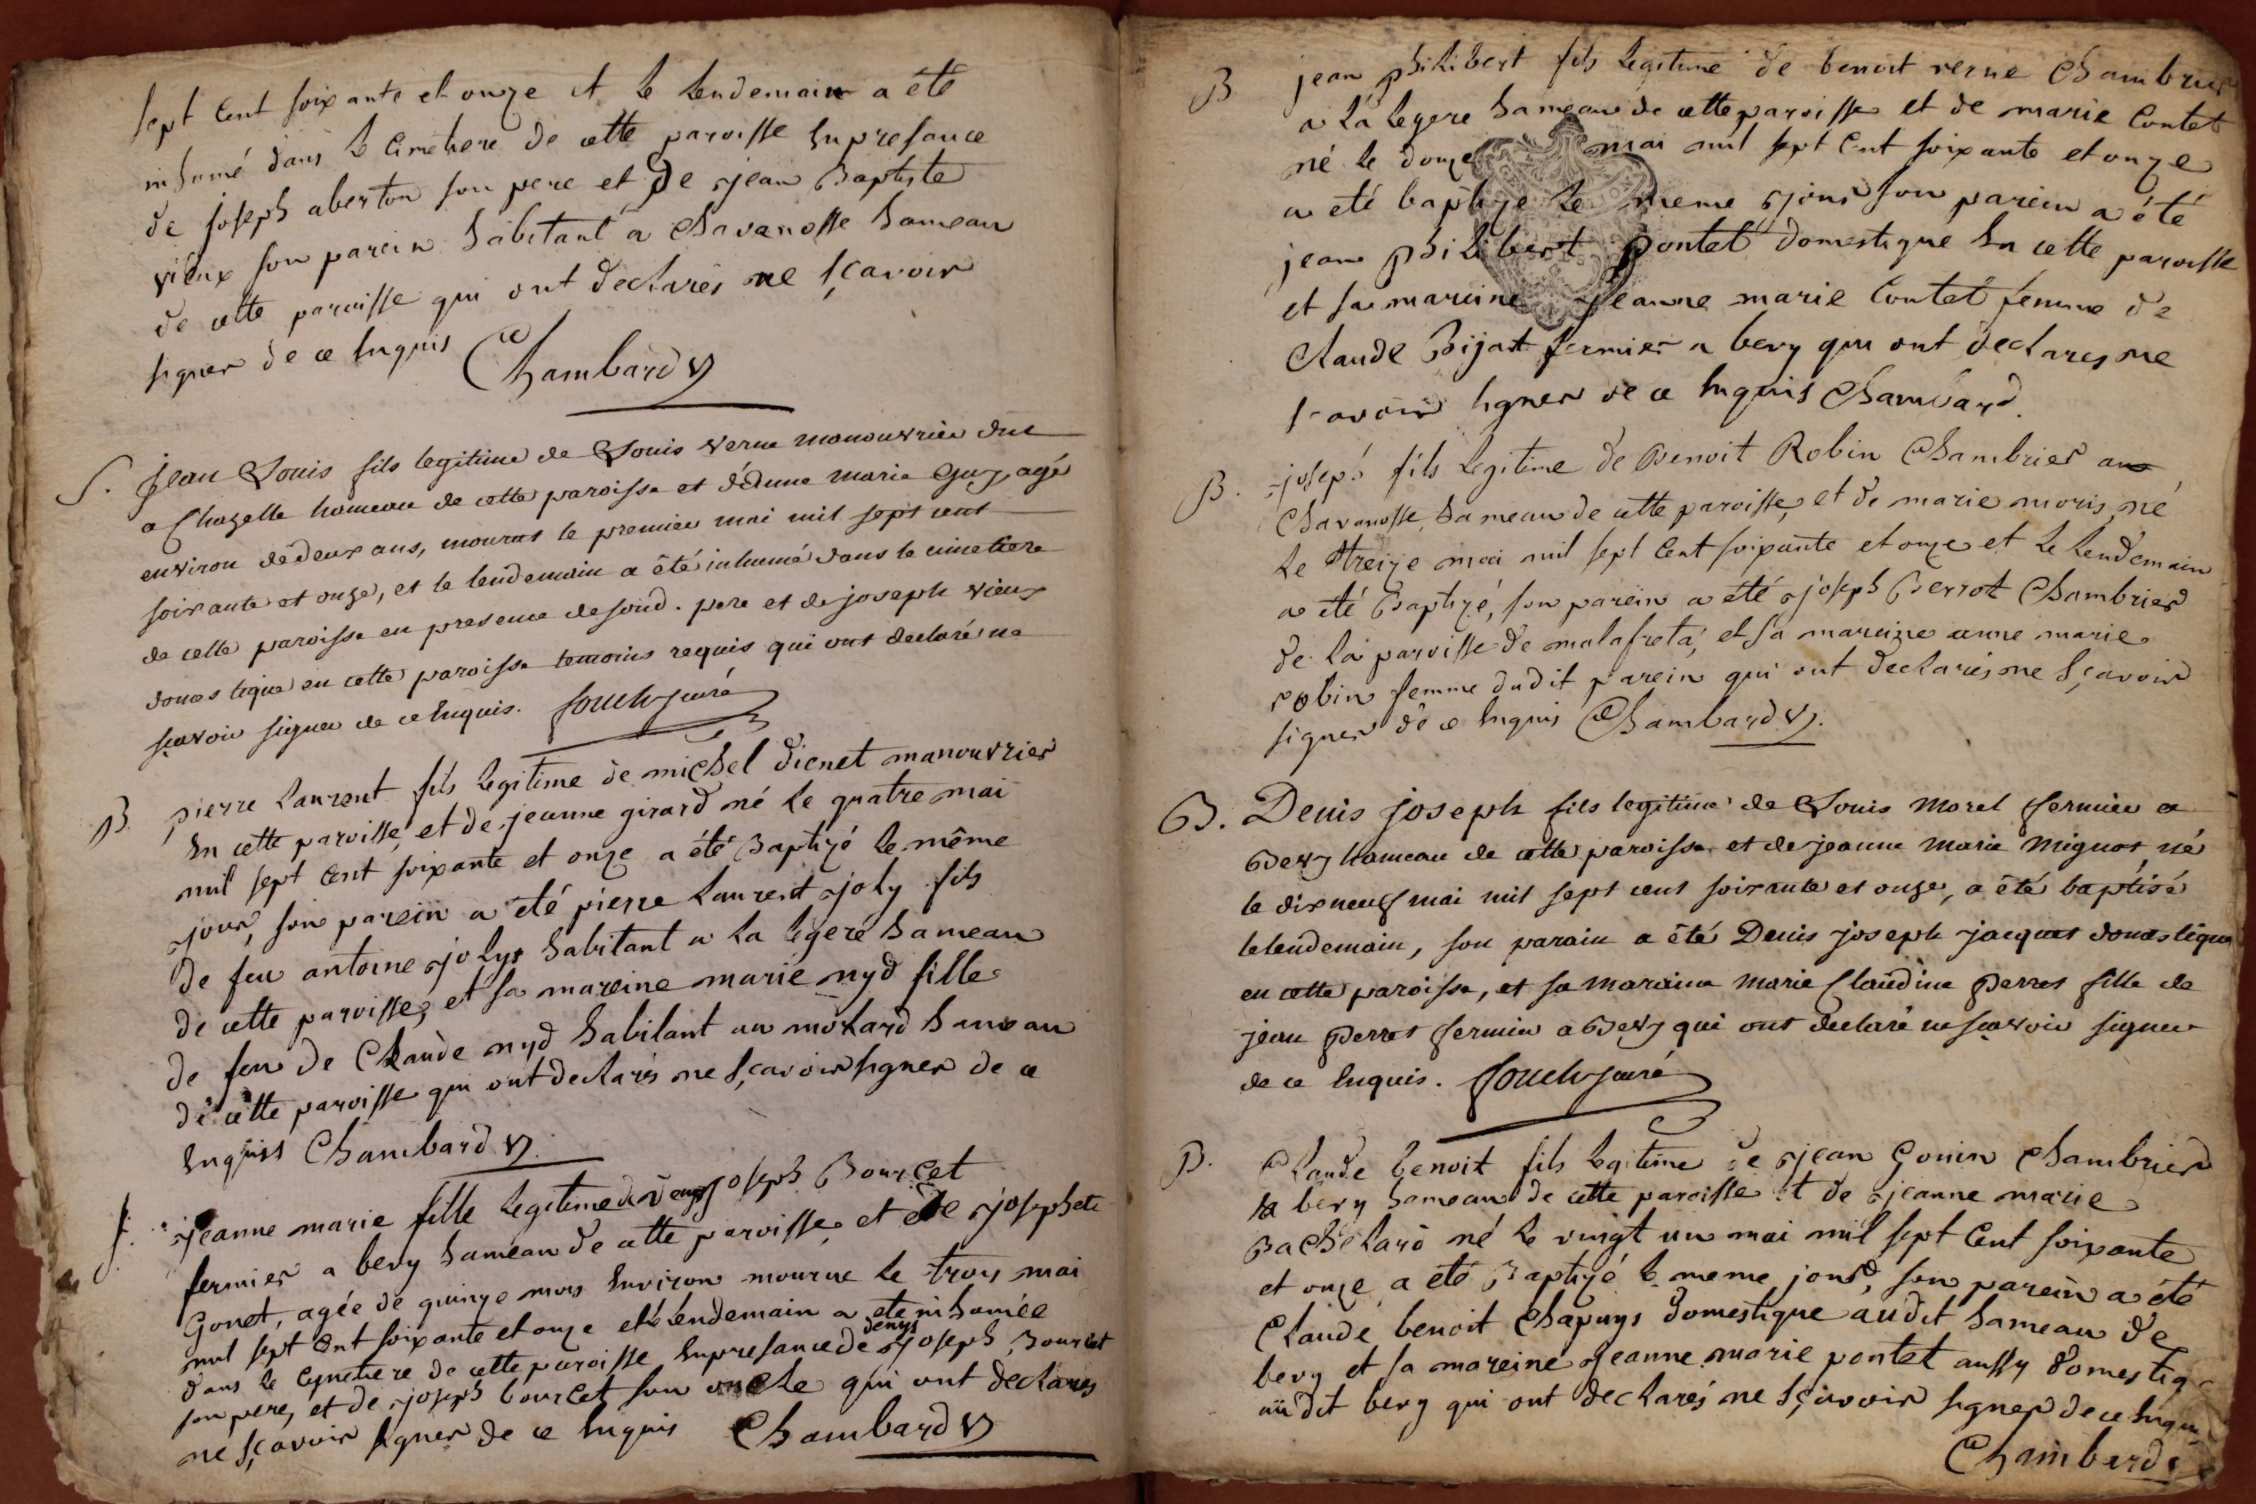 sept cent soixante et onze et le lendemain a été
inhumé dans le cimetiere de cette paroisse en presance
de joseph aberton son pere et de jean Baptiste
vieux son parein habitant a Chavanosse hameau
de cette paroisse qui ont declarés ne sçavoir
signer de ce enquis Chambard v
S. jean Louis fils legitime de Louis verne manouvrier
a Chazelle hameau de cette paroisse et marie guy, agé
environ de deux ans, mourut le premier mai mil sept cent
soixante et onze, et le lendemain a été inhumé dans le cimetiere
de cette paroisse en presence de sond. pere et de joseph vieux
domestique en cette paroisse temoins requis qui ont declaré ne
sçavoir signer de ce enquis. curé
B pierre laurent fils legitime de michel dienet manouvrier
en cette paroisse, et de jeanne girard né le quatre mai
mil sept cent soixante et onze a été Baptizé le même
jour, son parein a eté pierre laurent joly fils
de feu antoine joly habitant a la legere hameau
de cette paroisse, et sa mareine marie nyd fille
de feu de Claude nyd habitant au molard hameau
de cette paroisse qui ont declarés ne sçavoir signer de ce
enquis Chambard v.
S. jeanne marie fille legitime de denys joseph Bourcet
fermier a bevy hameau de cette paroisse, et de josephete
Gonet, agée de quinze mois environ mourue le trois mai
mil sept cent soixante et onze et le lendemain a ete inhumée
dans le cymetiere de cette paroisse en presance de denys joseph Bourcet
son pere, et de joseph bourcet son oncle qui ont declarés
ne sçavoir signer de ce enquis Chambard v
B jean philibert fils legitime de benoit verne Chambrier
a la legere hameau de cette paroisse et de marie Contet
né le douze mai mil sept cent soixante et onze
a eté baptize le meme jour son parein a été
jean philibert pontet domestique en cette paroisse
et sa mareine jeanne marie Contet femme de
Claude Bijat fermier a bevy qui ont declares ne
savoir signer de ce enquis Chambard.
B. joseph fils legitime de Benoit Robin Chambrier au
Chavanosse hameau de cette paroisse, et de marie moris né
le treize mai mil sept cent soixante et onze et le lendemain
a eté Baptizé, son parein a été joseph Perrot Chambrier
de la paroisse de malafreta, et sa mareine anne marie
robin femme dudit parein qui ont declarés ne sçavoir
signer de ce enquis Chambard v.
B. Denis joseph fils legitime de Louis Morel fermier a
Bevy hameau de cette paroisse et de jeanne Marie Mignot, né
le dix neuf mai mil sept cent soixante et onze, a été baptisé
le lendemain, son parain a été Denis joseph jacquet domestique
en cette paroisse, et sa maraine Marie Claudine Perret fille de
jean Perret fermier a Bevy qui ont declaré ne sçavoir signer
de ce enquis. curé
B. Claude benoit fils legitime de jean Gonin Chambrier
a bevy hameau de cette paroisse et de jeanne marie
Bachelard né le vingt un mai mil sept cent soixante
et onze a eté Baptizé le meme jour, son parein a été
Claude benoit Chapuys domestique audit hameau de
bevy et sa mareine jeanne marie pontet aussy domestiq
audit bevy qui ont declarés ne sçavoir signer de ce enquis
Chambard